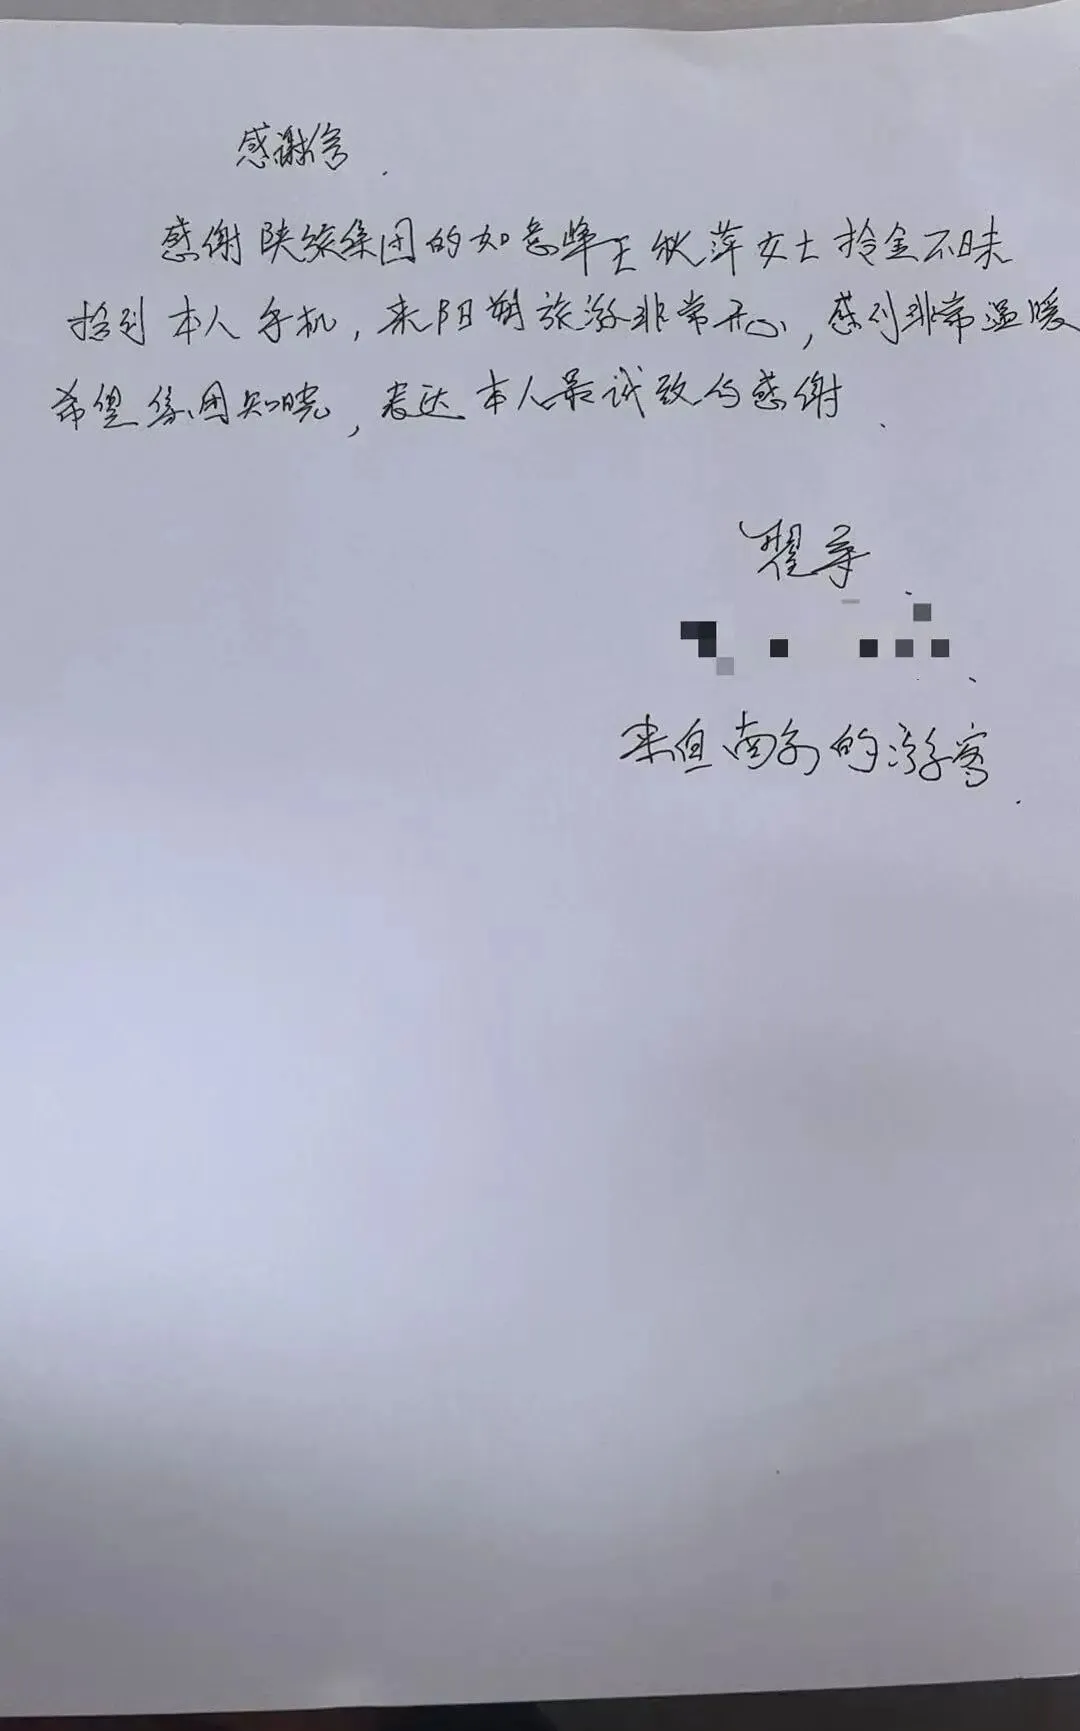 感谢信.
感谢陕旅集团的如意峰王秋萍女士拾金不昧
拾到本人手机,来阳朔旅游非常开心,感到非常温暖
希望集团知晓,表达本人最诚致的感谢.
翟
来自南京的游客.